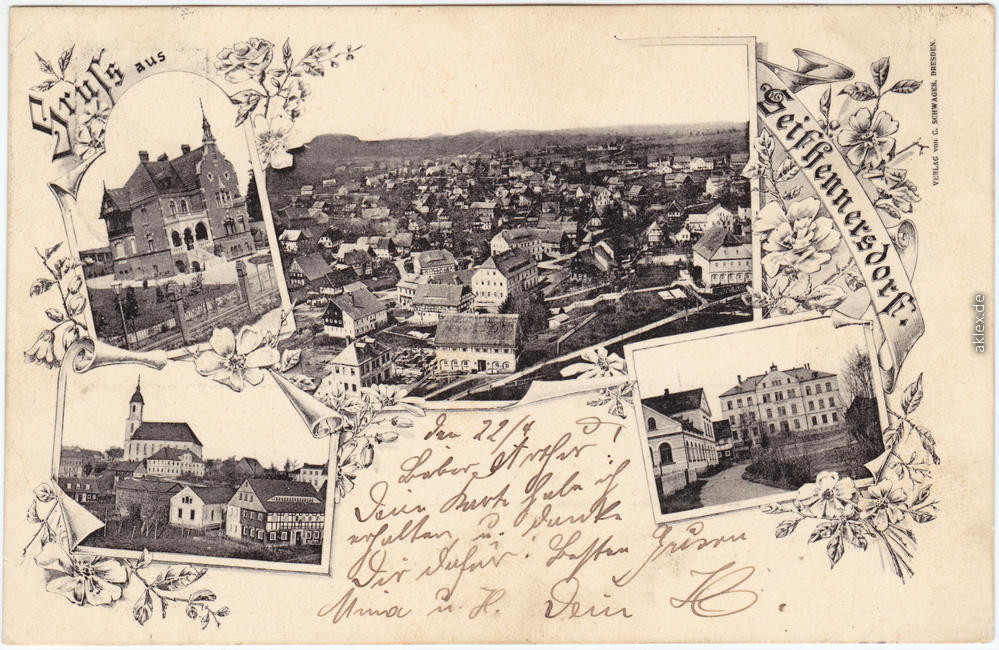 Gruß aus
Seifhennersdorf.
VERLAG von C. SCHWAGER, DRESDEN.
aklex.de
den 22/4
Lieber Arthur!
Deine Karte habe ich
erhalten u. danke
Dir dafür! Besten Grüsen
Mina u. H. Dein H.